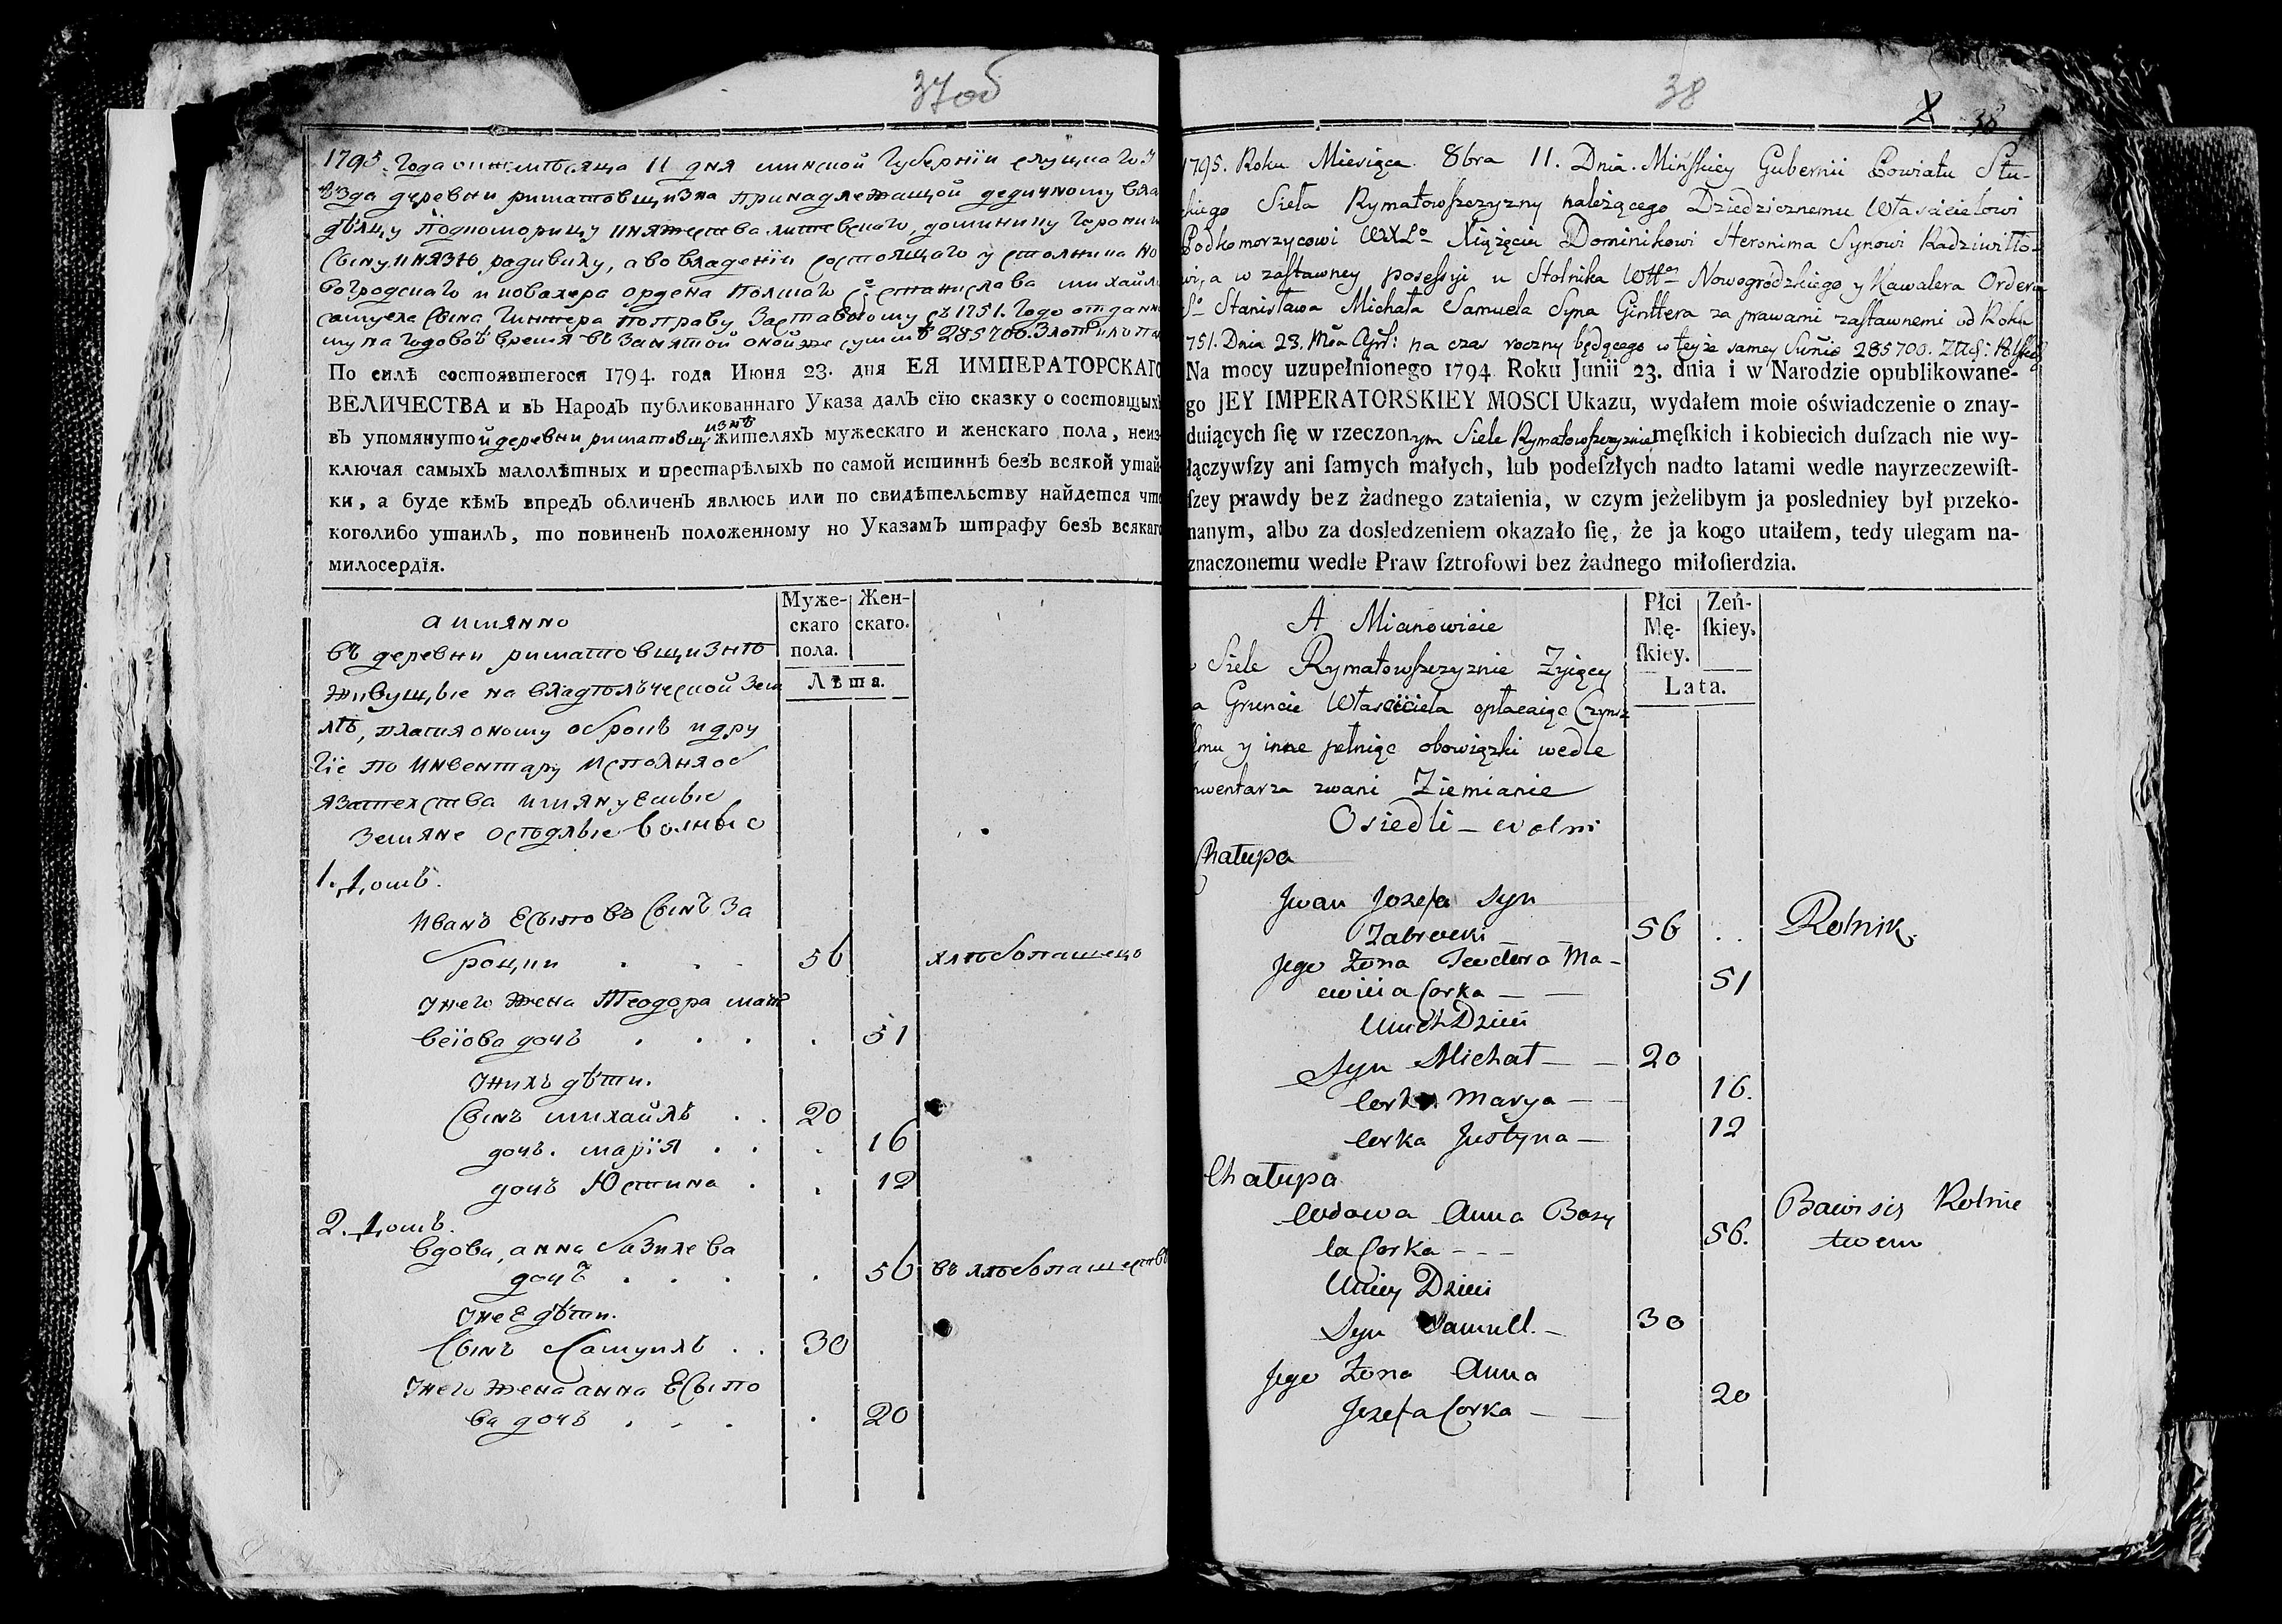 37об
1795. Года октМЪсяца 11 дня минской Губернїи слуцкаго У
Ѣзда деревни риматовщизна принадлежащой дедичному вла
дѣлцу Подкоморицу княжества литевскаго, доминику Героним
Сыну князю радивилу, а во владенїи состоящаго у столника но
вогродскаго и ковалера ордена Полшаго С: станислава михайла
самуела Сына Гинтера поправу Заставному съ 1751. Году отданно
му на годовоѣ время въ занятой оной же суммѣ 285700. Злот
По силѣ состоявшегося 1794. года Июня 23. дня ЕЯ ИМПЕРАТОРСКАГО
ВЕЛИЧЕСТВА и въ Народъ публикованнаго Указа далъ сїю сказку о состоящыхъ
въ упомянутой деревни риматовщизнѣ жителяхъ мужескаго и женскаго пола, неиз-
ключая самыхъ малолѣтныхъ и престарѣлыхъ по самой истиннѣ безъ всякой утай-
ки, а буде кѣмъ впредъ обличенъ явлюсь или по свидѣтельству найдется что
коголибо утаилъ, то повиненъ положенному но Указамъ штрафу безъ всякаго
милосердїя.
Муже-
скаго
пола.
Жен-
скаго.
Лѣта.
а имянно
въ деревни риматовщизнѣ
живущые на владѣлческой зем
лѣ, платя оному оброкъ и дру
гїе по инвентару исполняоб
язателства имянуемые
земяне оседлые волные
1. Домъ.
Иванъ Есыповъ Сынъ За
броцки . . . 56 хлѣбопашецъ
Унего жена Теодора мат
веїова дочъ . . . . 51
Унихъ дѣти.
Сынъ михайлъ . . 20
дочъ. марїя . . . 16
дочъ Юстина . . 12
2. Домъ.
Вдова, анна базилева
дочъ . . . . 56 въ хлѣбопашествѣ
Унее дѣти.
Сынъ Самуилъ . . 30
Унего жена анна Есыпо
ва дочъ . . . . 20
38
38
1795. Roku Miesiąca 8bra 11. Dnia. Mińskiey Gubernii Powiatu Słu-
ckiego Sieła Rymatowszczyzny należącego Dziedzicznemu Włascicielowi
Podkomorzycowi WXLo Xiążęciu Dominikowi Heronima Synowi Radziwiłło-
wi, a w zastawney posessyi u Stolnika Nowogródzkiego y Kawalera Ordera
So Stanisława Michała Samuela Syna Ginttera za prawami zastawnemi od Roku
751. Dnia 23. Mca Apr: na czas roczny będącego w teyże samey Summie 285700.
Na mocy uzupełnionego 1794 Roku Junii 23. dnia i w Narodzie opublikowane-
go JEY IMPERATORSKIEY MOSCI Ukazu, wydałem moie oświadczenie o znay-
duiących ſię w rzeczonym Siele Rymatowszczyznie męſkich i kobiecich duſzach nie wy-
łączywſzy ani ſamych małych, lub podeſzłych nadto latami wedle nayrzeczewiſt-
ſzey prawdy bez żadnego zataienia, w czym jeżelibym ja posledniey był przeko-
nanym, albo za dosledzeniem okazało ſię, że ja kogo utaiłem, tedy ulegam na-
znaczonemu wedle Praw ſztrofowi bez żadnego miłoſierdzia.
Płci
Mę-
ſkiey.
Zeń-
ſkiey.
Lata.
A Mianowicie
Siele Rymatowszczyznie Zyiący
a Gruncie Własciciela opłacaiąc Czynsz
mu y inne pełniąc obowiązki wedle
nwentarza zwani Ziemianie
Osiedli – wolni
Chałupa
Jwan Jozefa Syn
Zabrocki 56 . . Rolnik.
Jego Zona Teodora Ma-
cwieia Corka — — 51
Unich Dzieci
Syn Michał — — 20
Corka Marya — 16.
Corka Justyna — 12
Chałupa
Wdowa Anna Bazy
la Corka - - - 56. Bawi się Rolnic
twem
Uniey Dzieci
Syn Samuel. — 30
Jego Zona Anna
Jozefa Corka — — 20